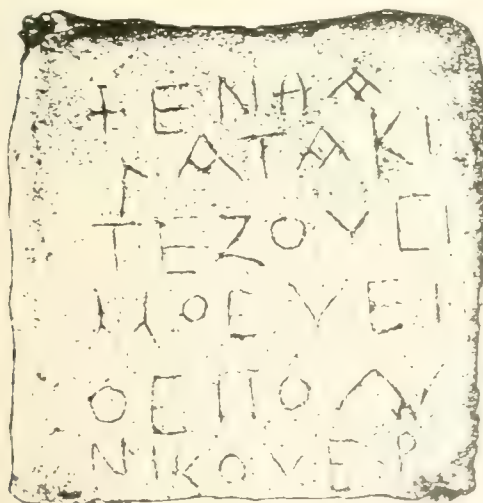 + ΕΝΗΑ
ΓΑΤΑΚΙ
ΤΕΖΟΥϹΙ
ΜΟϹΥΕΙ
ΟϹΠΟΛΥ
ΝΙΚΟΥΕΡ